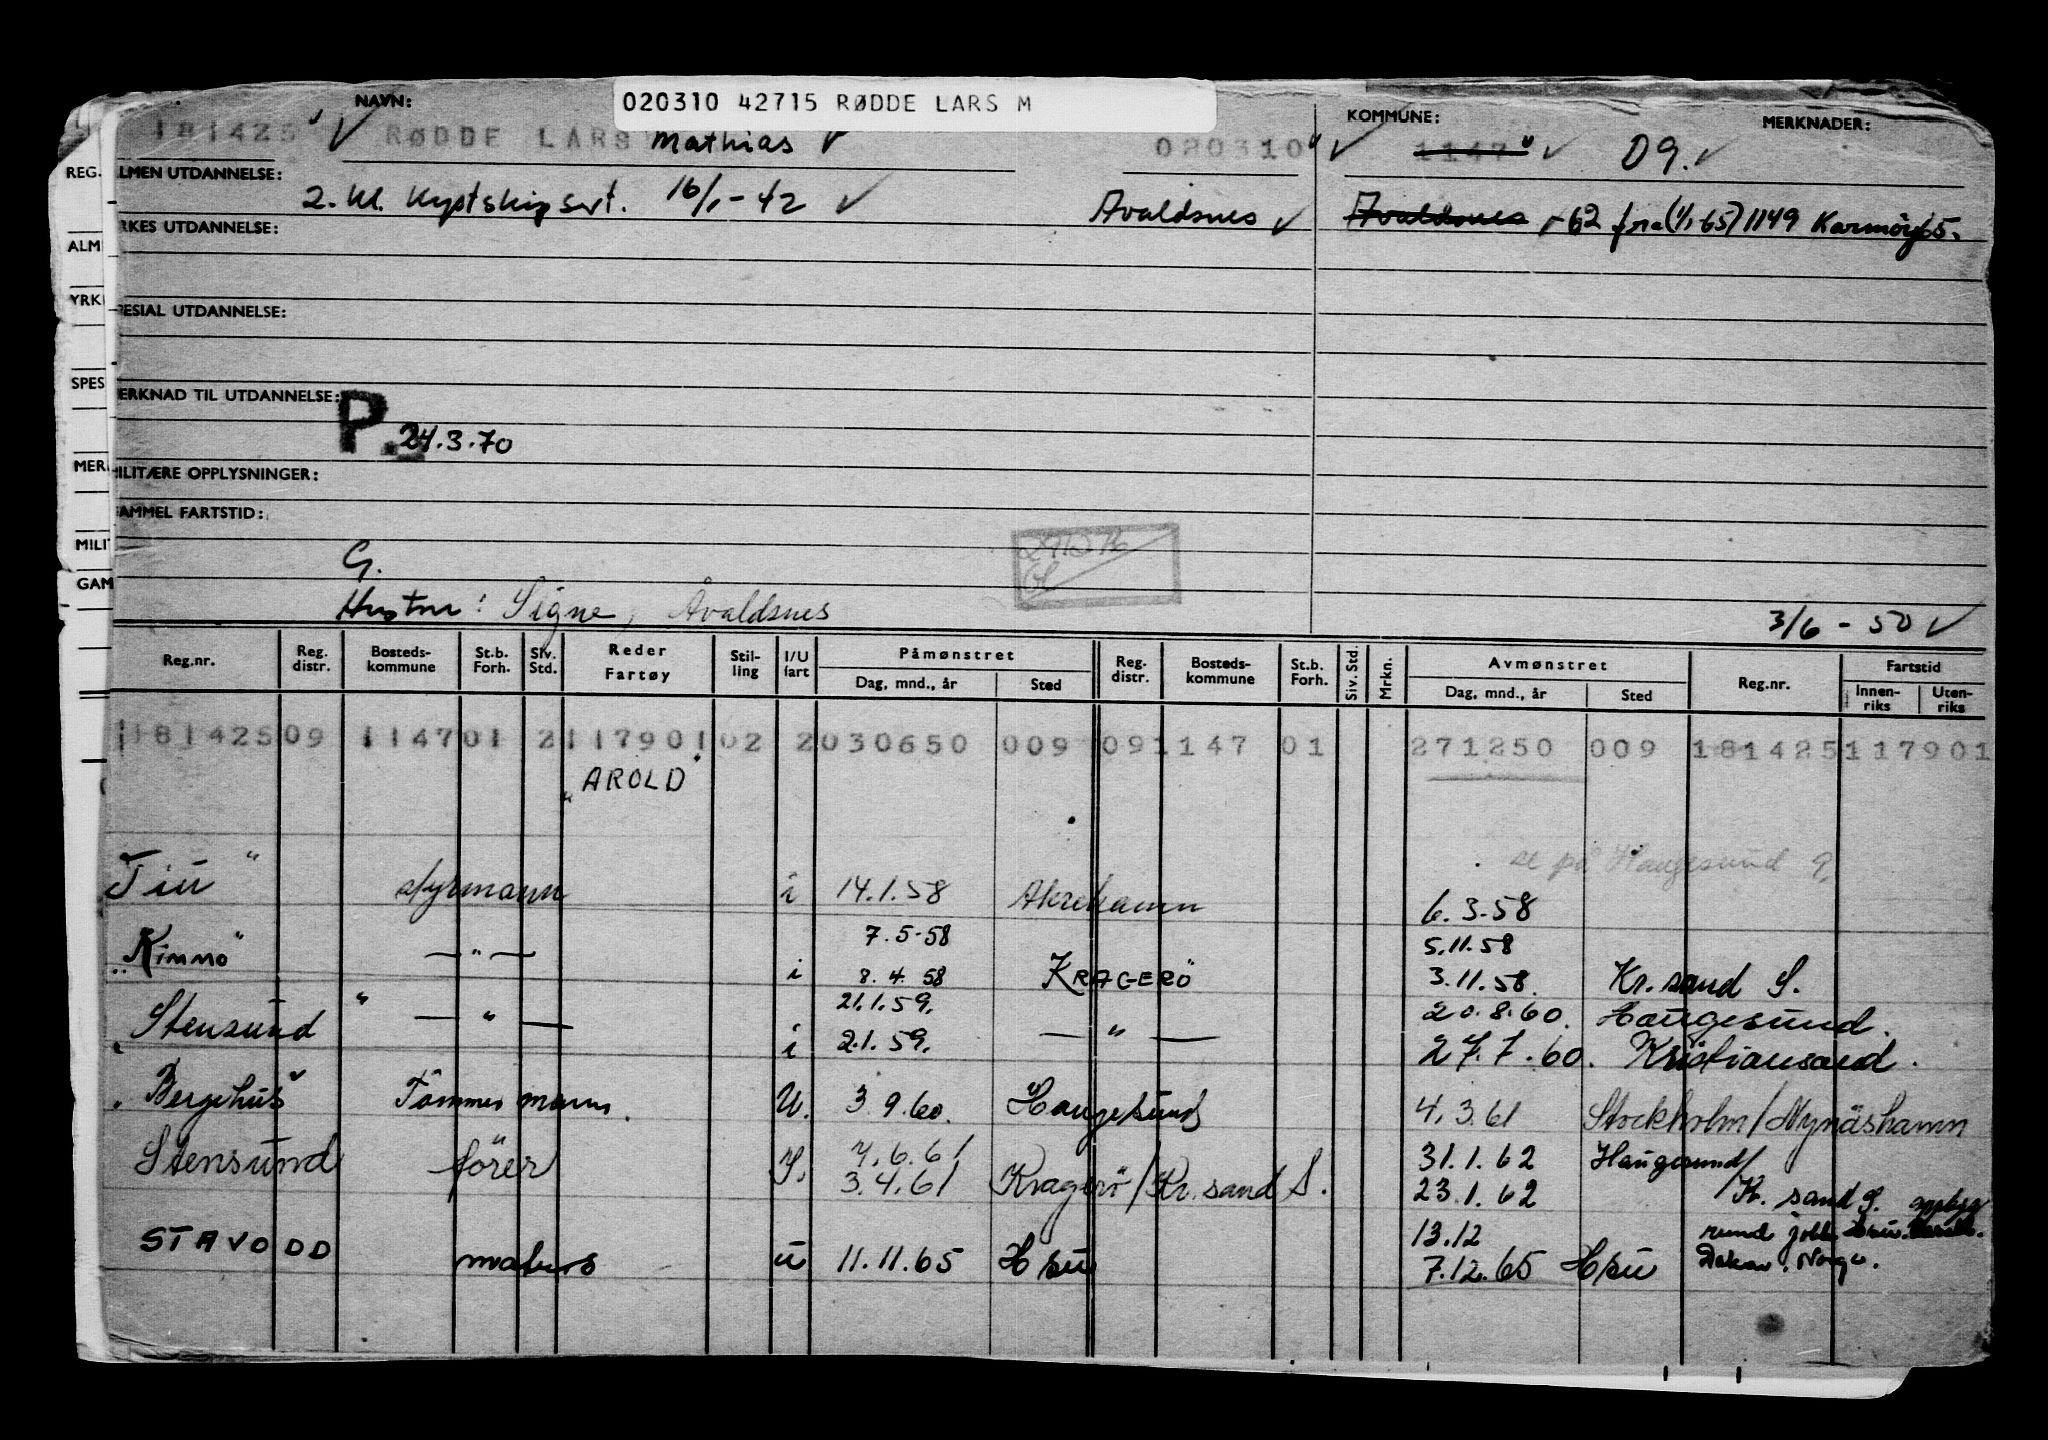 020310 42715 RØDDE LARS M
NAVN: KOMMUNE: MERKNADER:
181425 RØDDE LARS Mathias 020310 1147 09.
REG. ALMEN UTDANNELSE:
2. kl. Kystskipsert. 16/1-42 Avaldsnes Avaldsnes -62 fra (1/1 65) 1149 Karmöy 65.
ALM YRKES UTDANNELSE:
YRK SPESIAL UTDANNELSE:
SPES MERKNAD TIL UTDANNELSE:
P. 24.3.70
MER MILITÆRE OPPLYSNINGER:
GAMMEL FARTSTID:
MILIT
G.
GAM
Hustru: Signe, Avaldsnes 3/6-50
Reg.nr. Reg. distr. Bosteds- kommune St.b. Forh. Siv. Std. Reder Fartøy Stil- ling I/U fart Påmønstret Dag, mnd., år Sted Reg. distr. Bosteds- kommune St.b. Forh. Siv. Std. Mrkn. Avmønstret Dag, mnd., år Sted Reg.nr. Fartstid Innen- riks Uten- riks
181425 09 1147 01 2 117901 02 2 030650 009 09 1147 01 271250 009 181425 117901
"AROLD"
se på Haugesund
Tiu " styrmann i 14.1.58 Åkrehamn 6.3.58
7.5.58 5.11.58
"Rimmö" — " — i 8.4.58 KRAGERÖ 3.11.58. Kr.sand S.
21.1.59. 20.8.60. Haugesund.
Stensund " — " — i 2.1.59. — " — 27.7.60. Kristiansand.
Bergehus Tömmermann. U. 3.9.60. Haugesund 4.3.61 Stockholm/Nynäshamn
7.6.61 31.1.62 Haugesund/
Stensund förer 3.4.61 Kragerö/Kr.sand S. 23.1.62 Kr.sand S.
13.12
STAVODD matros u 11.11.65 Hsu 7.12.65 Hsu Dakar. Norge.